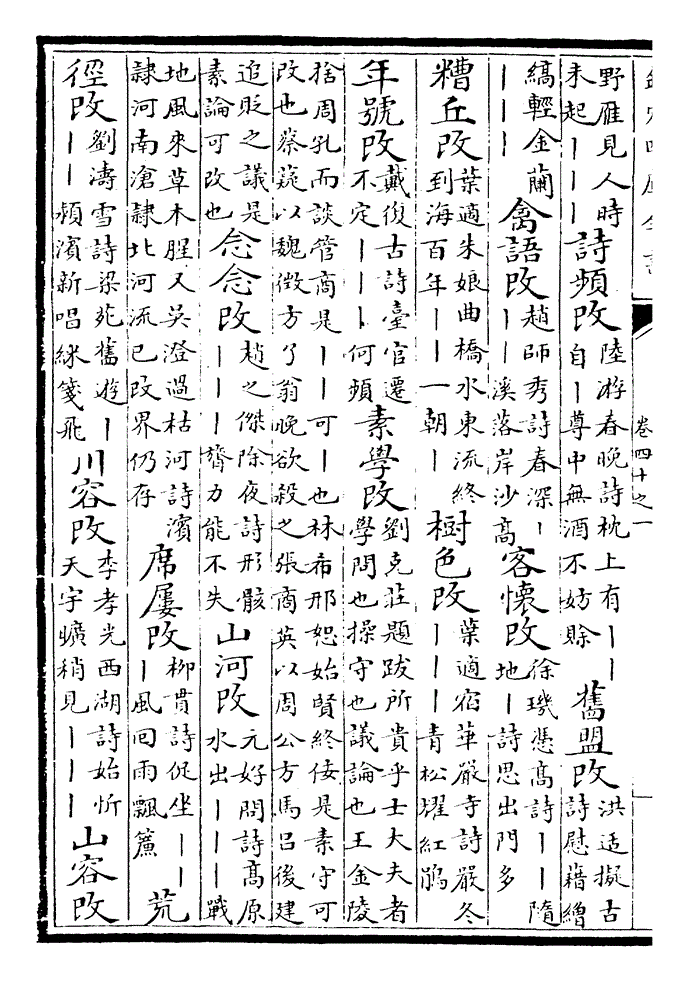 卷四十之一
野雁見人時未起｜｜｜詩頻改陸游春晚詩枕上有｜｜自｜尊中無酒不妨賒舊盟改洪适擬古詩慰藉繒
縞輕金蘭｜｜｜禽語改趙師秀詩春深｜｜｜溪落岸沙高客懷改徐璣憑高詩｜｜隨地｜詩思出門多
糟丘改葉適朱娘曲橋水東流終到海百年｜｜一朝｜樹色改葉適宿華嚴寺詩嚴冬｜｜｜青松躍紅鵑
年號改戴復古詩臺官遷不定｜｜｜何頻素學改劉克莊題跋所貴乎士大夫者學問也操守也議論也王金陵
捨周孔而談管商是｜｜可｜也林希邢恕始賢終佞是素守可改也蔡薿以魏徴方了翁晚欲殺之張商英以周公方馬呂後建
追貶之議是素論可改也念念改趙之傑除夜詩形骸｜｜｜膂力能不失山河改元好問詩高原水出｜｜｜戰
地風來草木腥又吳澄過枯河詩濱隷河南滄隷北河流已改界仍存席屢改柳貫詩促坐｜｜｜風回雨飄簾荒
徑改劉濤雪詩梁苑舊遊｜｜｜頻濱新唱綵箋飛川容改李孝光西湖詩始忻天宇曠稍見｜｜｜山容改